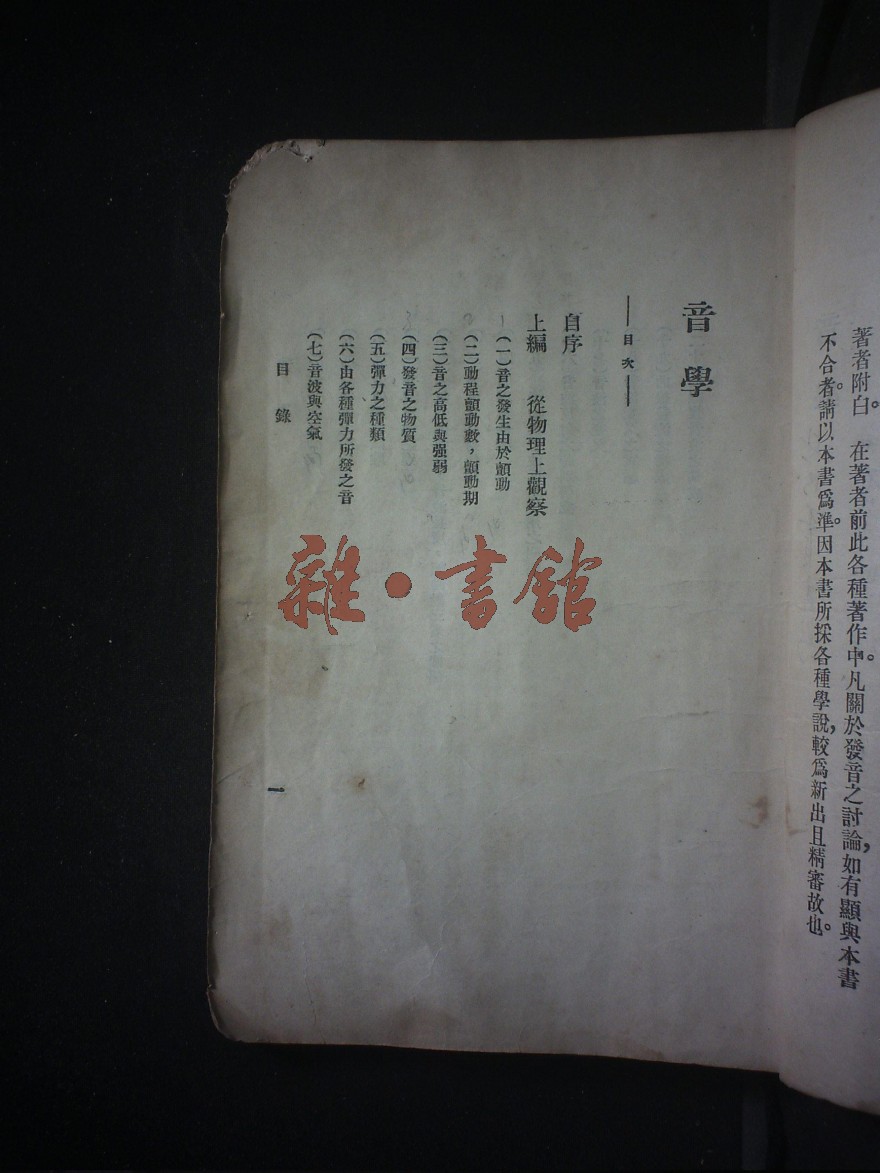 著者附白。　在著者前此各種著作中。凡關於發音之討論，如有顯與本書
不合者。請以本書爲準。因本書所採各種學說，較爲新出且精審故也。
音學
——目次——
自序
上編　從物理上觀察
(一)音之發生由於顫動
(二)動程顫動數，顫動期
(三)音之高低與强弱
(四)發音之物質
(五)彈力之種類
(六)由各種彈力所發之音
(七)音波與空氣
目錄
一
雜·書館